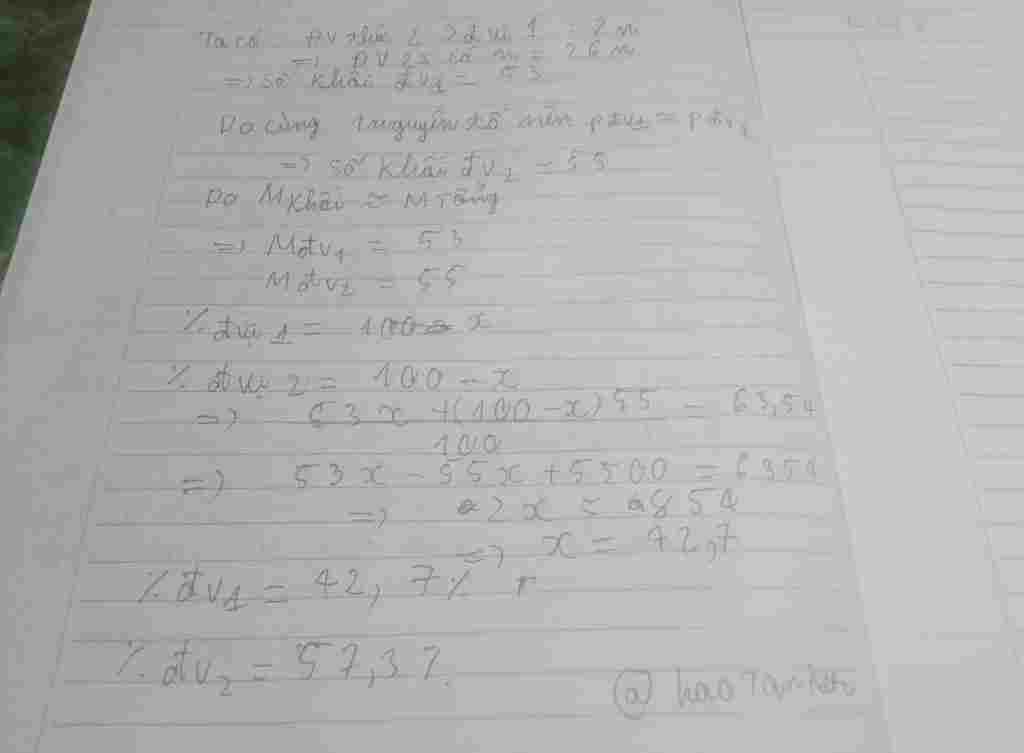 Ta có ĐV thứ 2 > đvị 1 : 2 n
=> ĐV 2 có n = 26 n
=> số khối đv1 = 53
Do cùng 1 nguyên tố nên p đv1 = p đv2
=> số khối đv2 = 55
Do M khối ≈ M tổng
=> M đv1 = 53
M đv2 = 55
% đvị 1 = x
% đvị 2 = 100 - x
=> 53x + (100 - x) 55 = 63,54
100
=> 53x - 55x + 5500 = 6354
=> 2x = 854
=> x = 42,7
% đv1 = 42,7%
% đv2 = 57,3%